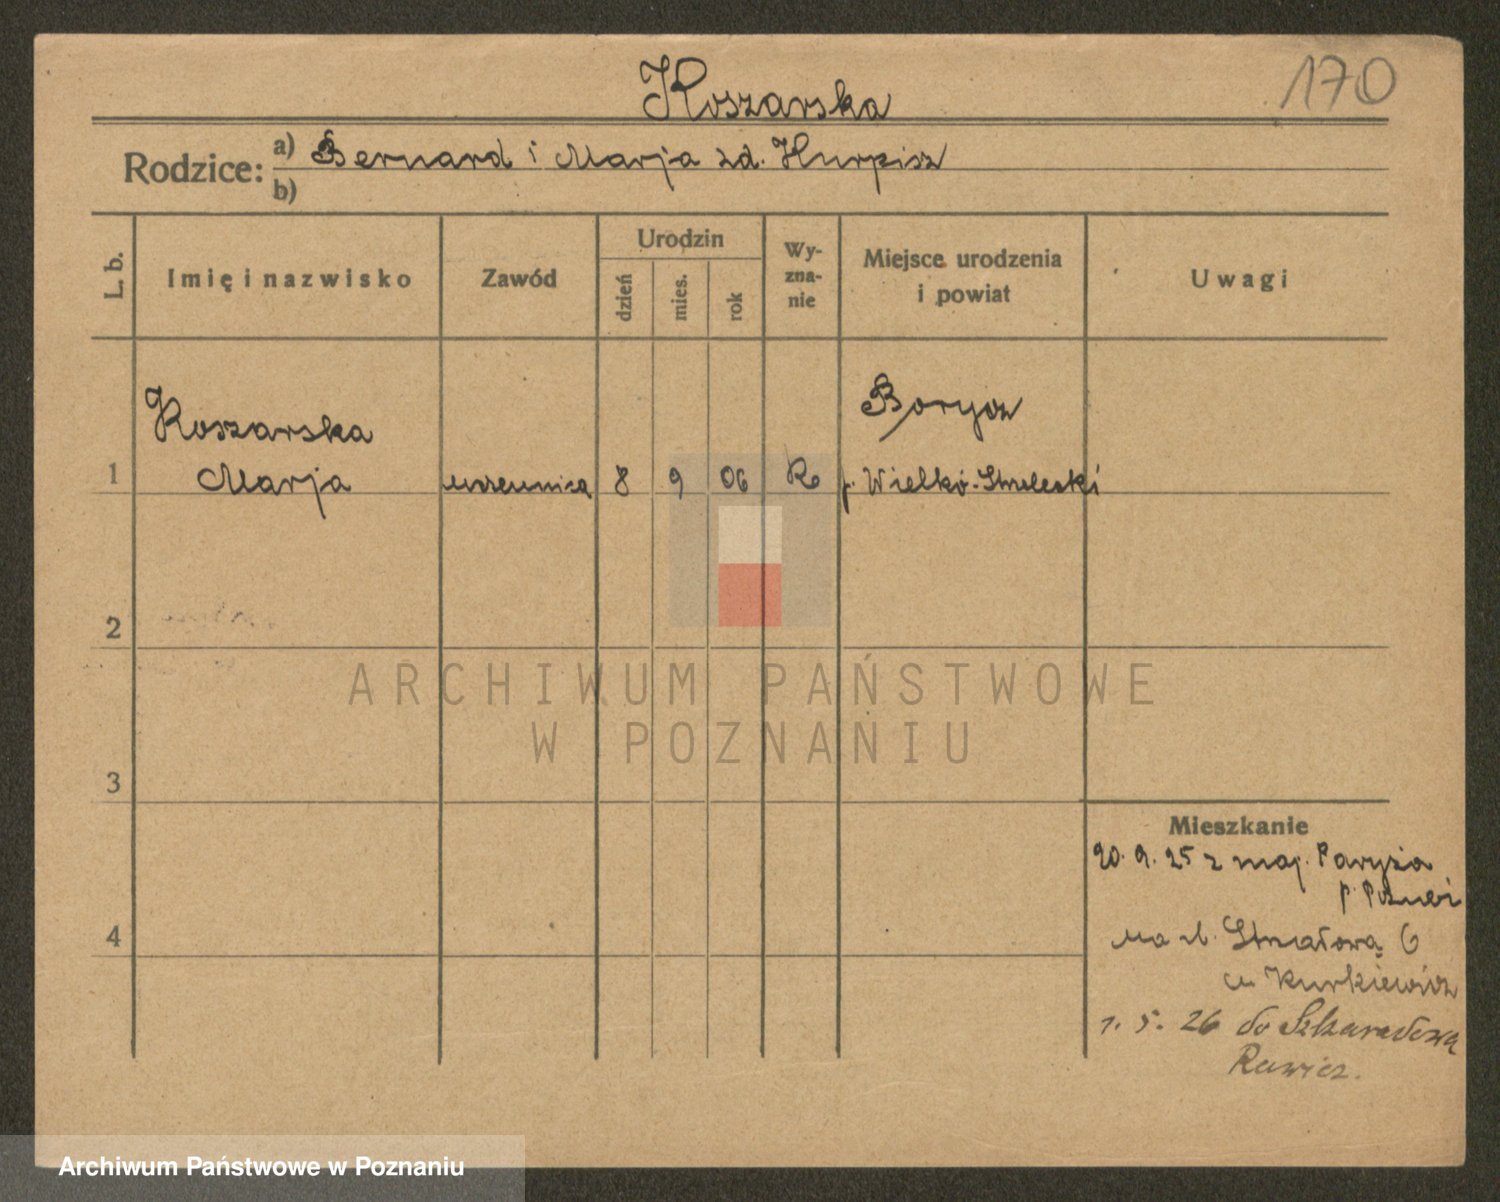 Koszarska
170
Rodzice: a) Bernard i Marja zd. Hurpisz
b)
L. b.
Imię i nazwisko
Zawód
Urodzin
dzień
mies.
rok
Wy-
zna-
nie
Miejsce urodzenia
i powiat
Uwagi
Koszarska
Borycz
1 Marja uczennica 8 9 06 p. Wielko-Strzelecki
2
3
4
Mieszkanie
20. 9. 25 z maj.
na ul. Strzałową 6
u Kurkiewicz
1. 5. 26 do Szkaradowa
Rawicz.
ARCHIWUM PAŃSTWOWE
W POZNANIU
Archiwum Państwowe w Poznaniu